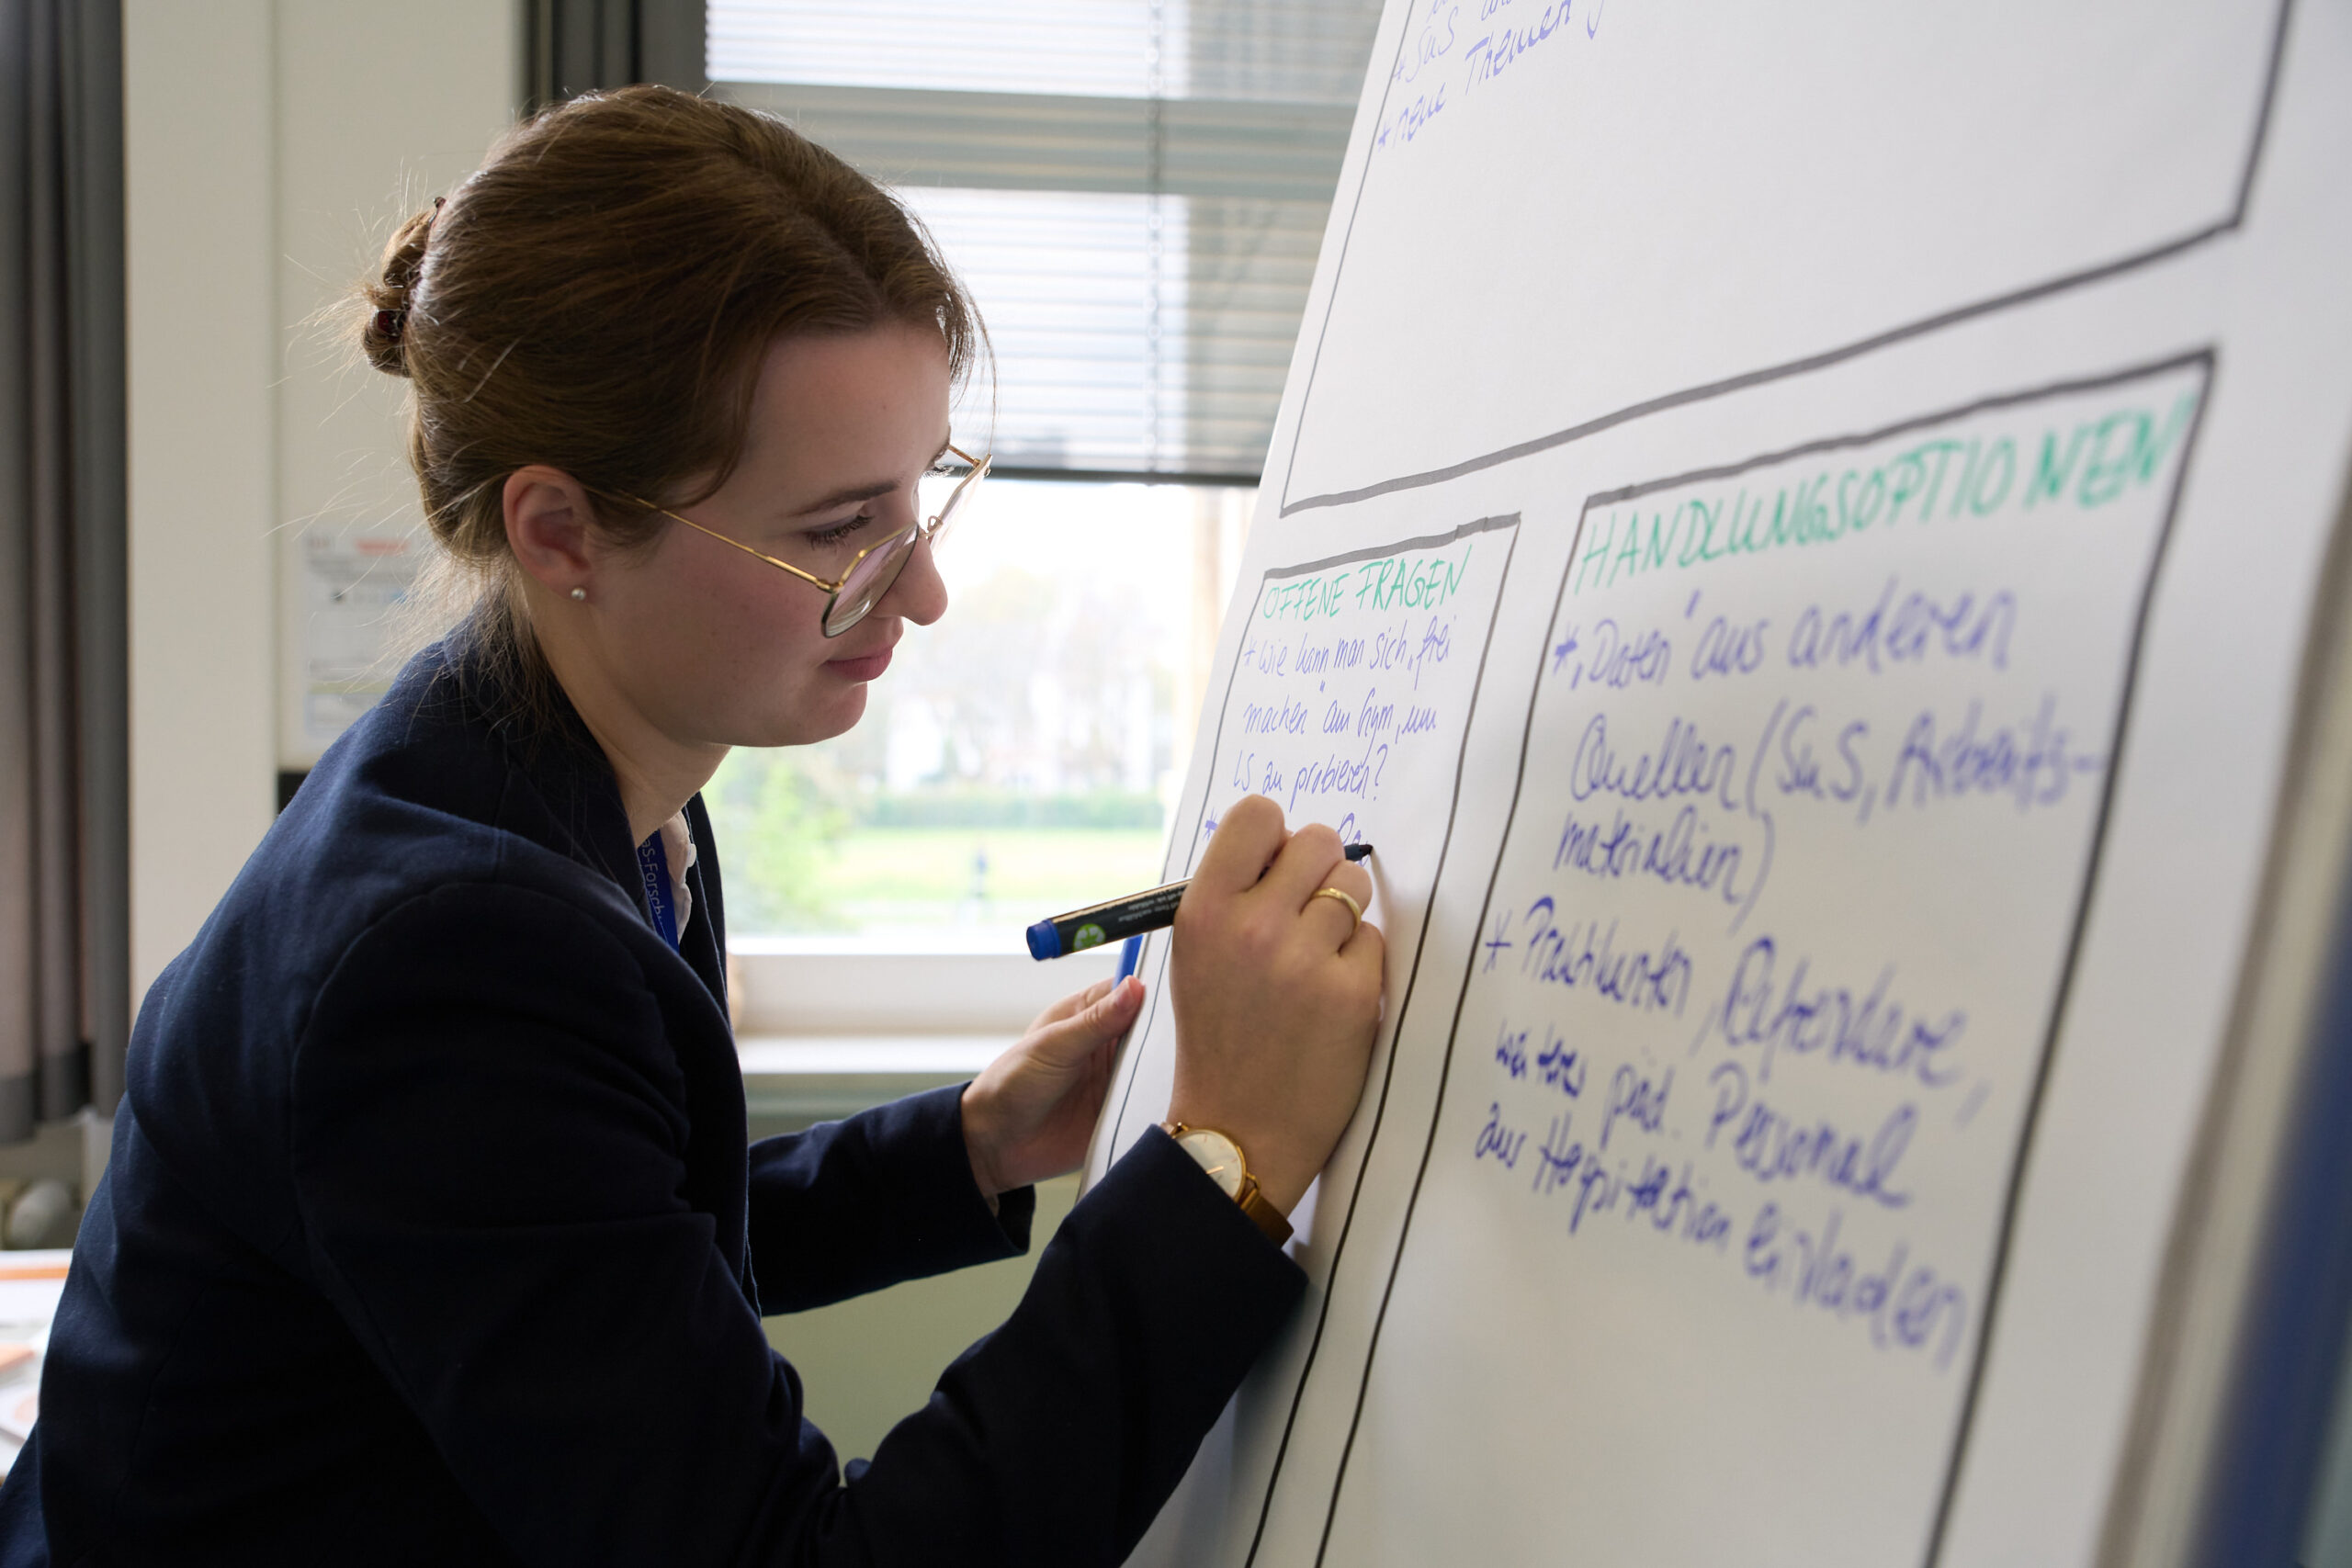 * SuS
* neue Themen
OFFENE FRAGEN
* Wie kann man sich „frei
machen" am Gym, um
LS zu probieren?
*
HANDLUNGSOPTIONEN
* „Daten" aus anderen
Quellen (SuS, Arbeits-
materialien)
* Praktikanten, Referendare,
weiteres päd. Personal
zur Hospitation einladen
aS-Forschu